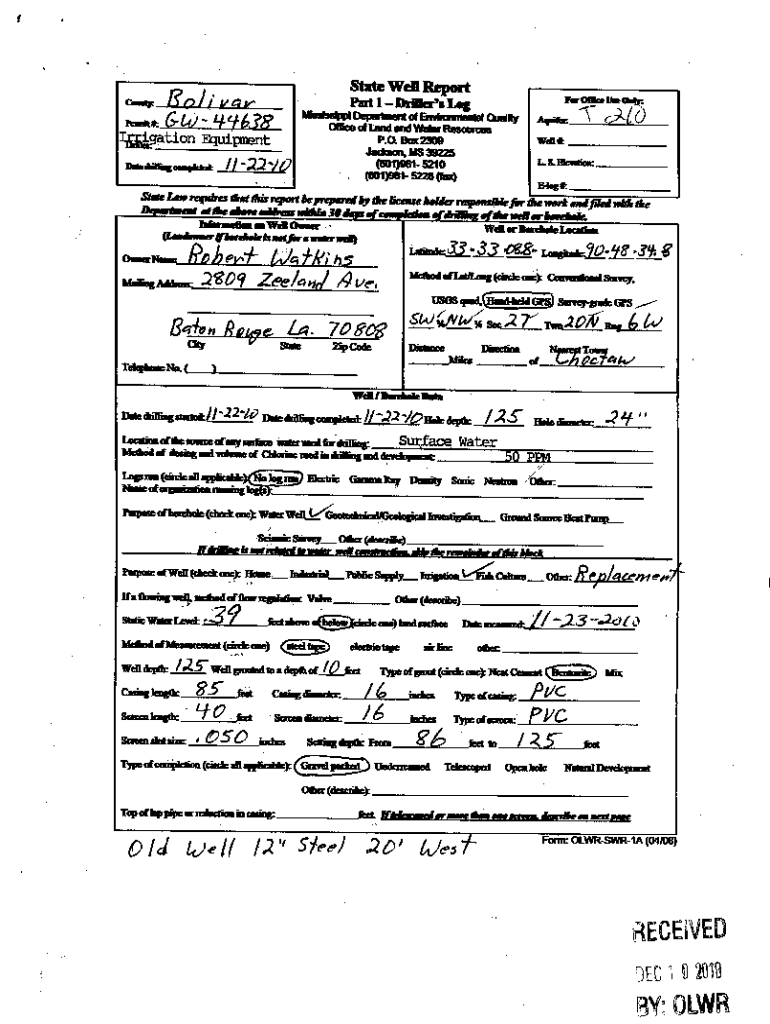 State Well Report
Part 1 – Driller's Log
Mississippi Department of Environmental Quality
Office of Land and Water Resources
P.O. Box 2309
Jackson, MS 39225
(601)961- 5210
(601)961- 5228 (fax)
County: Bolivar
Permit #: GW-44638
Irrigation Equipment
Driller:
Date drilling completed: 11-22-10
For Office Use Only:
Aquifer:
Well #:
L. S. Elevation:
E-log #:
State Law requires that this report be prepared by the license holder responsible for the work and filed with the
Department at the above address within 30 days of completion of drilling of the well or borehole.
Information on Well Owner
(Landowner if borehole is not for a water well)
Owner Name: Robert Watkins
Mailing Address: 2809 Zeeland Ave.
Baton Rouge La. 70808
City State Zip Code
Telephone No. ( )
Well or Borehole Location
Latitude: 33-33-088 Longitude: 90-48-34.8
Method of Lat/Long (circle one): Conventional Survey,
USGS quad, Hand-held GPS, Survey-grade GPS
SW ¼ NW ¼ Sec 27 Twn 20N Rng 6W
Distance Direction Nearest Town
Miles of Choctaw
Well / Borehole Data
Date drilling started: 11-22-10 Date drilling completed: 11-22-10 Hole depth: 125 Hole diameter: 24"
Location of the source of any surface water used for drilling: Surface Water
Method of dosing and volume of Chlorine used in drilling and development: 50 PPM
Logs run (circle all applicable): No log run Electric Gamma Ray Density Sonic Neutron Other:
Name of organization running log(s):
Purpose of borehole (check one): Water Well ✓ Geotechnical/Geological Investigation Ground Source Heat Pump
Seismic Survey Other (describe)
If drilling is not related to water well construction, skip the remainder of this block
Purpose of Well (check one): Home Industrial Public Supply Irrigation ✓ Fish Culture Other: Replacement
If a flowing well, method of flow regulation: Valve Other (describe)
Static Water Level: 39 feet above or below (circle one) land surface Date measured: 11-23-2010
Method of Measurement (circle one) steel tape electric tape air line other:
Well depth: 125 Well grouted to a depth of 10 feet Type of grout (circle one): Neat Cement Bentonite Mix
Casing length: 85 feet Casing diameter: 16 inches Type of casing: PVC
Screen length: 40 feet Screen diameter: 16 inches Type of screen: PVC
Screen slot size: .050 inches Setting depth: From 86 feet to 125 feet
Type of completion (circle all applicable): Gravel packed Underreamed Telescoped Open hole Natural Development
Other (describe):
Top of lap pipe or reduction in casing: feet. If telescoped or more than one screen, describe on next page
Form: OLWR-SWR-1A (04/08)
Old Well 12" Steel 20' West
RECEIVED
DEC 10 2010
BY: OLWR